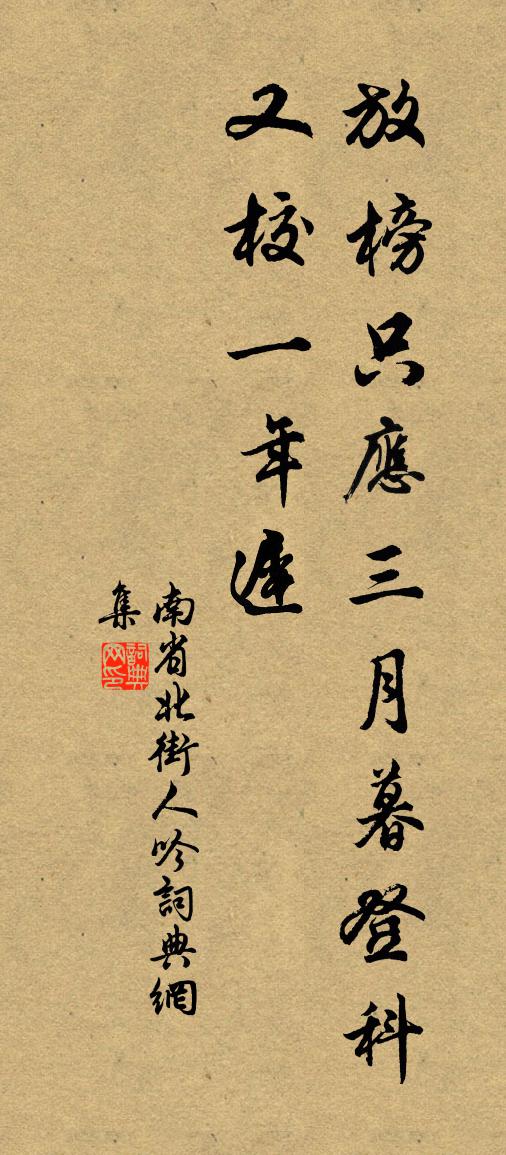 放榜只應三月暮登科
又校一年遲
南省北街人吟詞典網
集
詞典網印